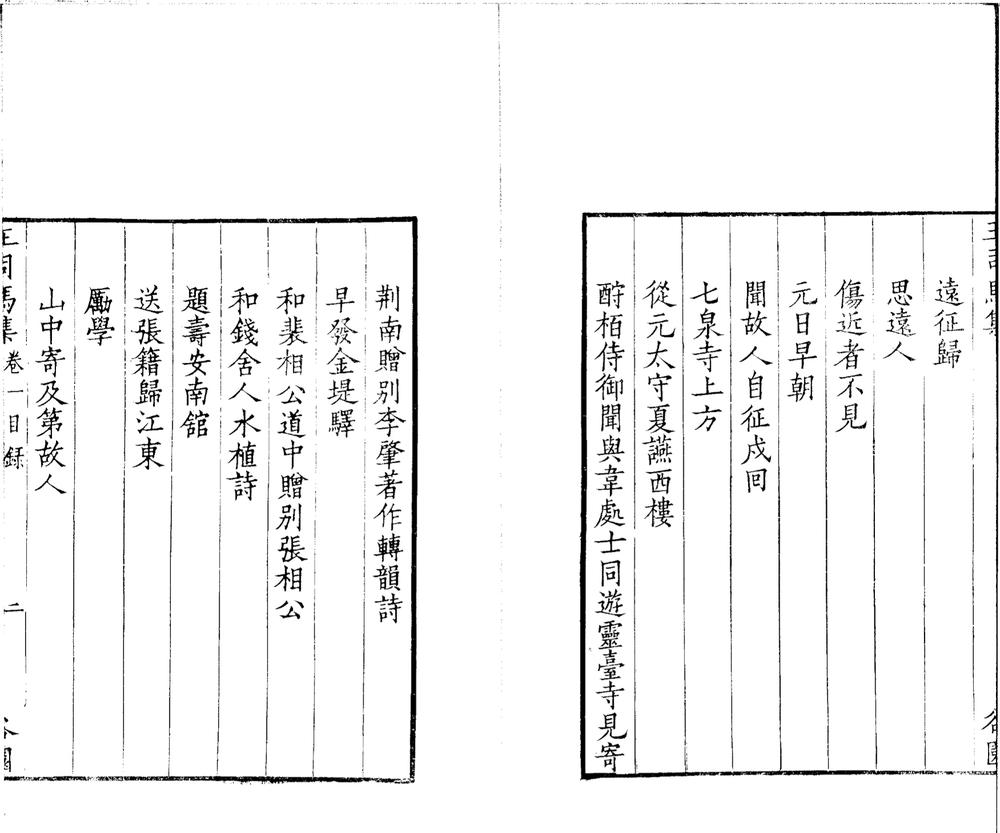 王司馬集 谷園
遠征歸
思遠人
傷近者不見
元日早朝
聞故人自征戍回
七泉寺上方
從元太守夏讌西樓
酧栢侍御聞與韋處士同遊靈臺寺見寄
荆南贈别李肇著作轉韻詩
早發金堤驛
和裴相公道中贈别張相公
和錢舍人水植詩
題壽安南舘
送張籍歸江東
勵學
山中寄及第故人
王司馬集 卷一目録 二 谷園